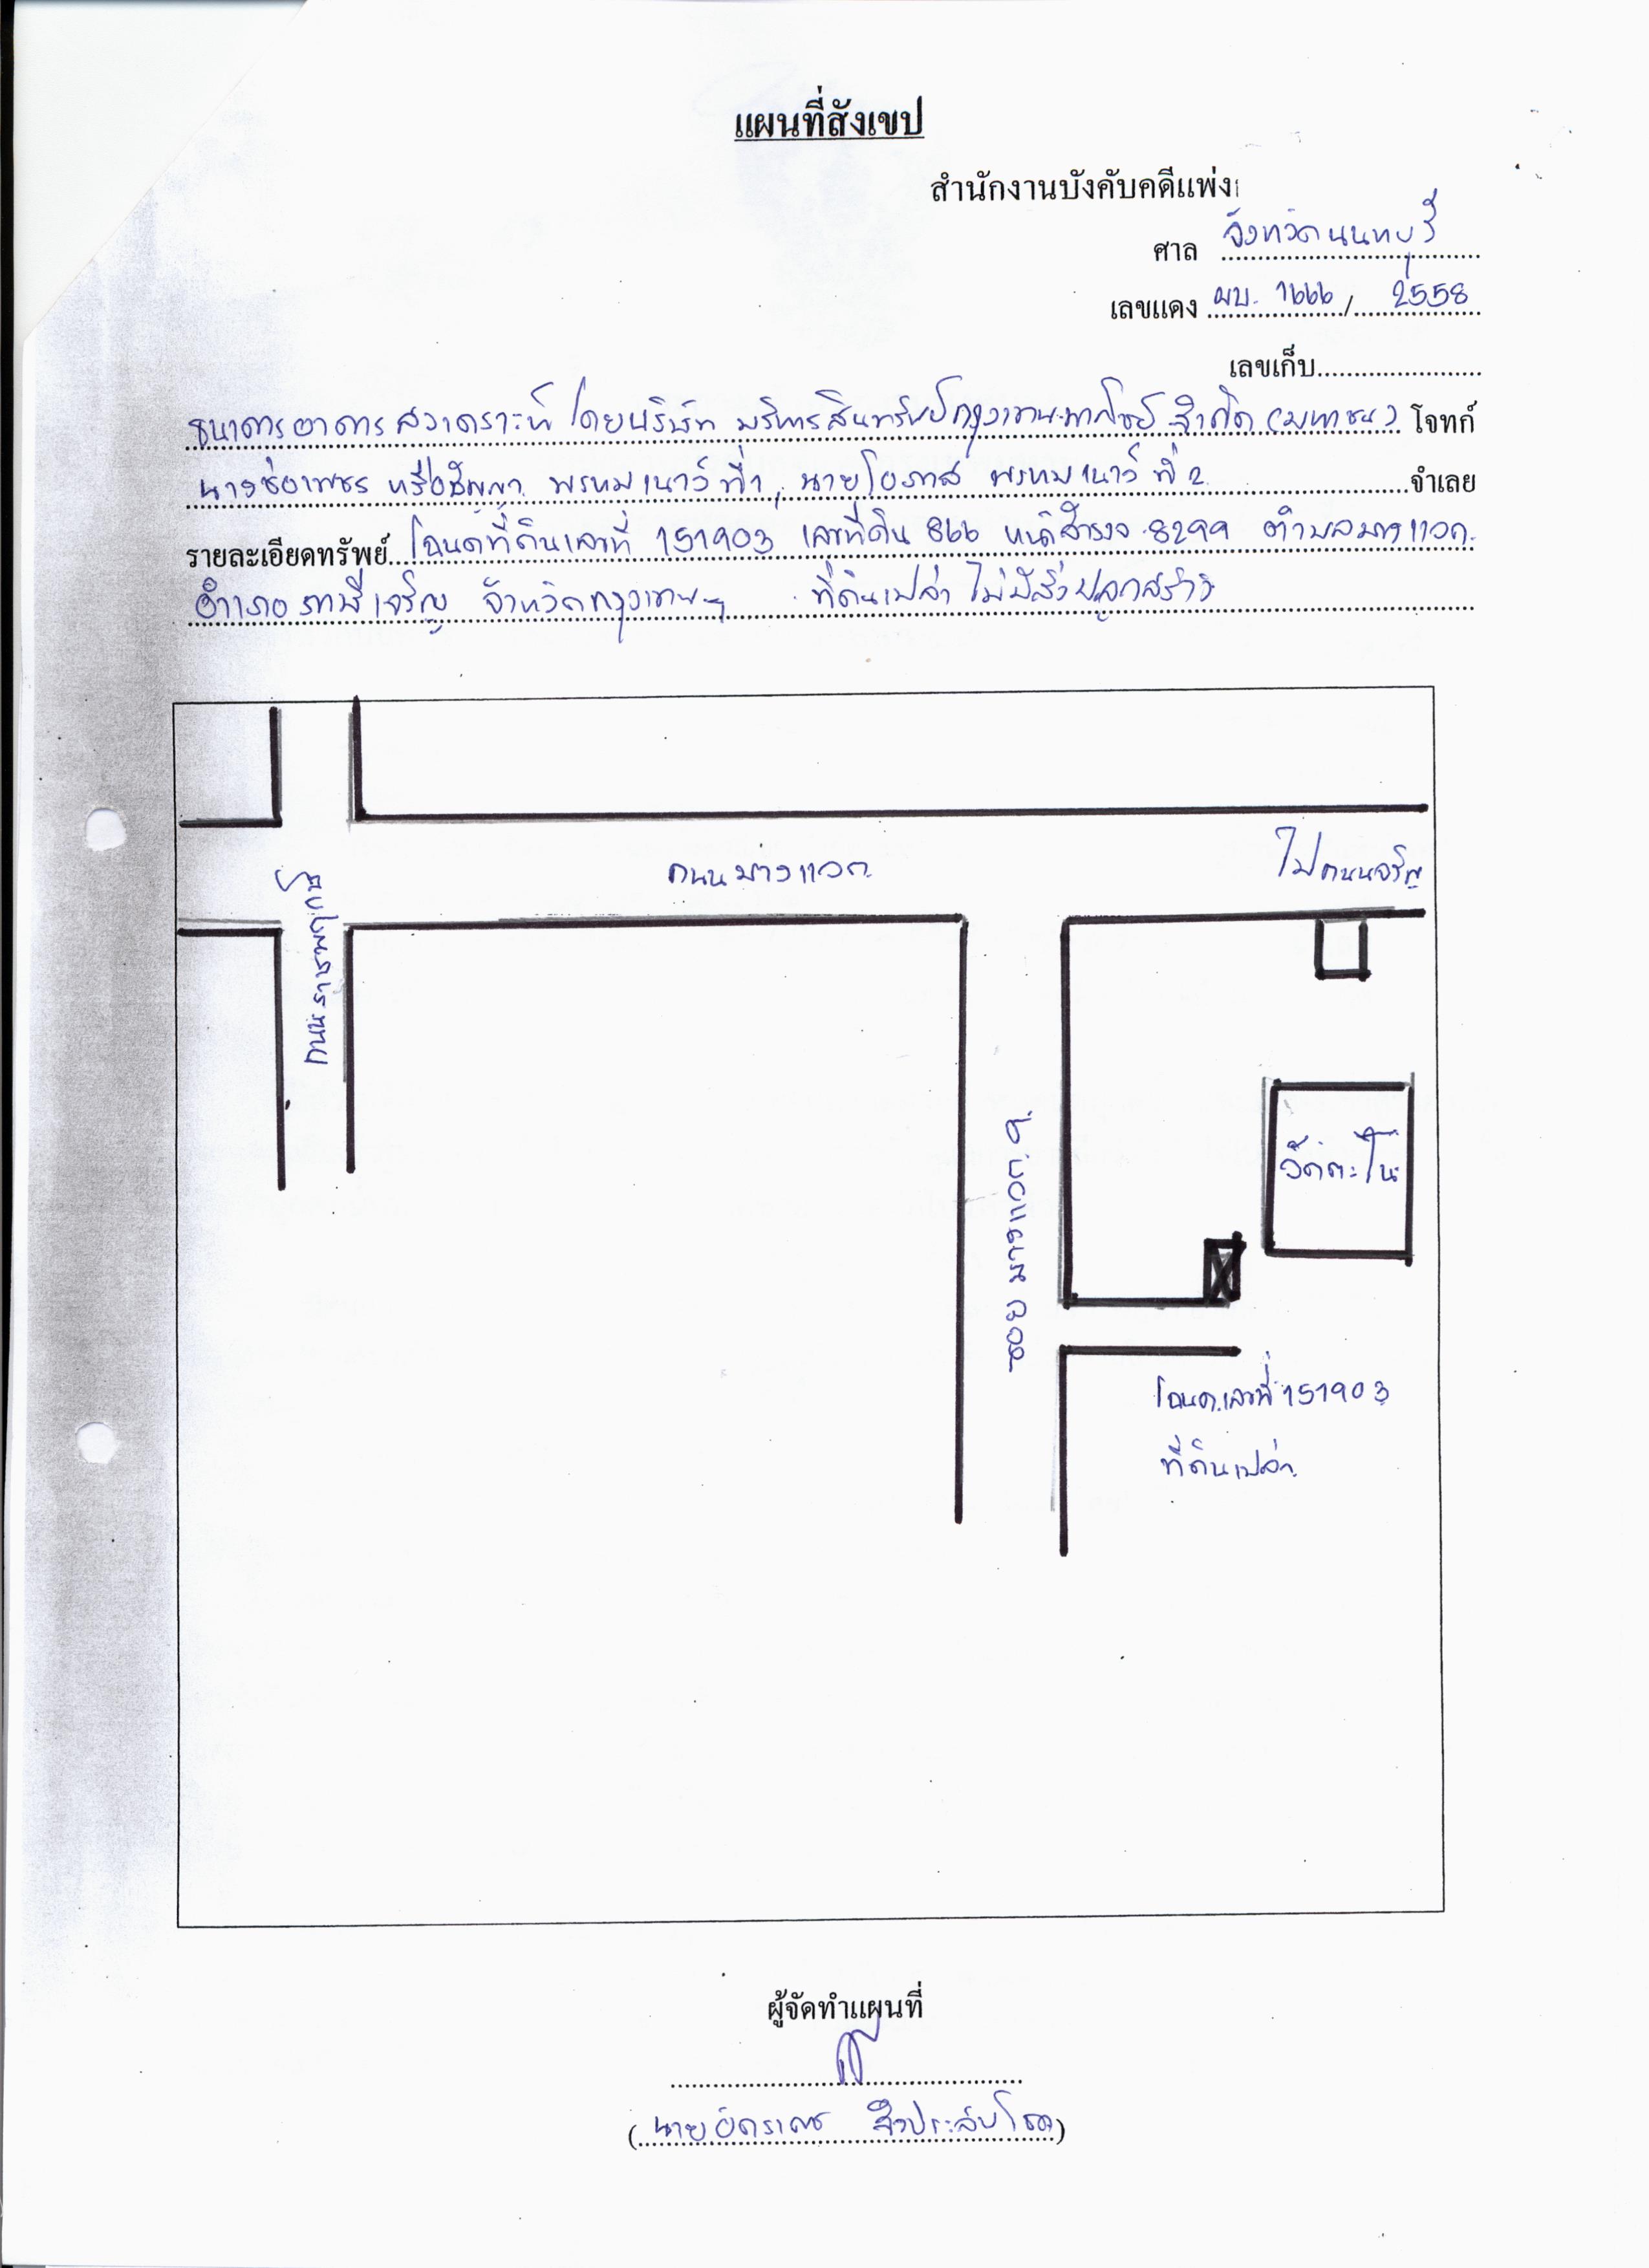 แผนที่สังเขป
สำนักงานบังคับคดีแพ่ง
ศาล จังหวัดนนทบุรี
เลขแดง ผบ. 1666 / 2558
เลขเก็บ
ธนาคารอาคารสงเคราะห์ โดยบริษัท บริหารสินทรัพย์กรุงเทพพาณิชย์ จำกัด (มหาชน) โจทก์
หรือธัญญา พรหมเนาว์ ที่1, นายโอภาส พรหมเนาว์ ที่ 2 จำเลย
รายละเอียดทรัพย์ โฉนดที่ดินเลขที่ 151903 เลขที่ดิน 866 หน้าสำรวจ 8299 ตำบลบางแวก
อำเภอภาษีเจริญ จังหวัดกรุงเทพฯ ที่ดินเปล่า ไม่มีสิ่งปลูกสร้าง
ถนนบางแวก
ไปถนนจรัญ
ถนนราชพฤกษ์
วัดตะโน
ซอย บางแวก
โฉนดเลขที่ 151903
ที่ดินเปล่า
ผู้จัดทำแผนที่
(นายอัครเดช)